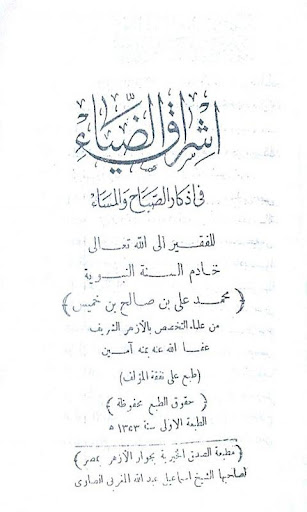 إشراق الضياء
في اذكار الصباح والمساء
للفقير الى الله تعالى
خادم السنة النبوية
﴿ محمد على بن صالح بن خميس ﴾
من علماء التخصص بالأزهر الشريف
عفا الله عنه بمنه آمين
(طبع على نفقة المؤلف)
﴿ حقوق الطبع محفوظة ﴾
الطبعة الاولى سنة ١٣٤٣ ه
﴿ مطبعة الصدق الخيرية بجوار الأزهر بمصر ﴾
لصاحبها الشيخ اسماعيل عبد الله المغربى الصاوى